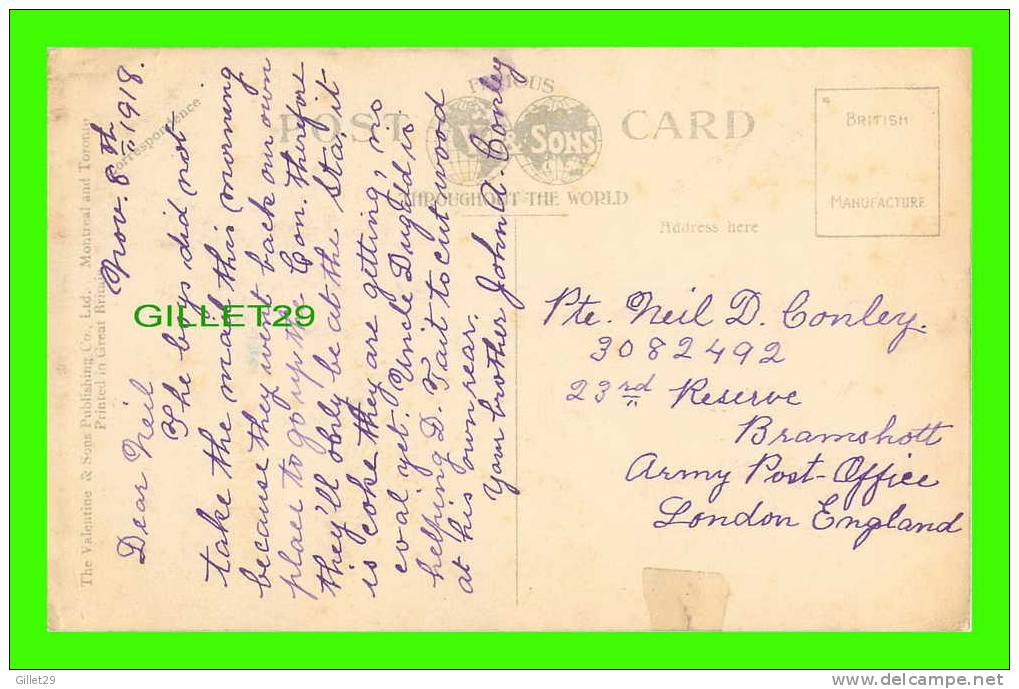 The Valentine & Sons Publishing Co., Ltd. Montreal and Toronto
Printed in Great Britain
Correspondence
Nov. 8th 1918.
Dear Neil
The boys did not
take the mail this morning
because they went back our own
place to go up the Con. therefore
they'll only be at the Sta, it
is coke they are getting, no
coal yet. Uncle Dugald is
helping D. Tait to cut wood
at his own rear.
Your brother John A. Conley
FAMOUS
POST CARD
& SONS
THROUGHOUT THE WORLD
BRITISH
MANUFACTURE
Address here
Pte. Neil D. Conley.
3082492
23rd Reserve
Bramshott
Army Post-Office
London England
GILLET29
Gillet29
www.delcampe.net